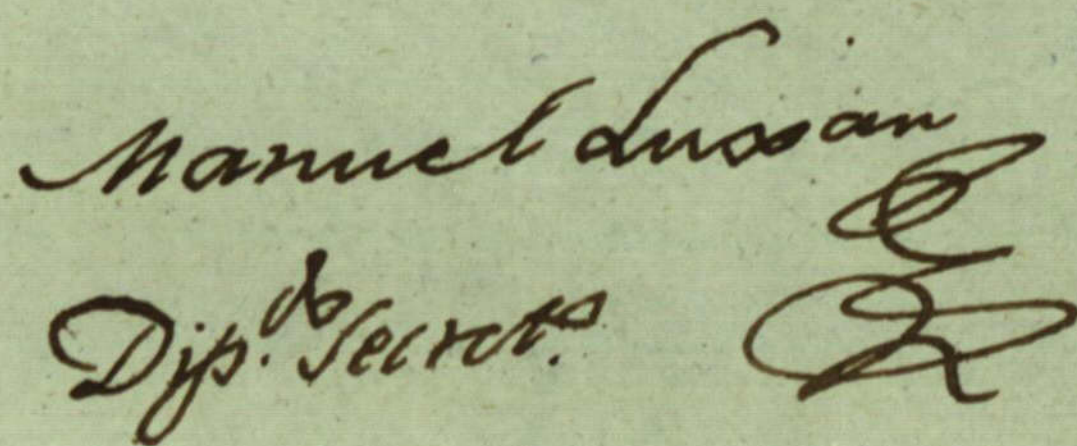 Manuel Luxan
Dip.do Secret.o